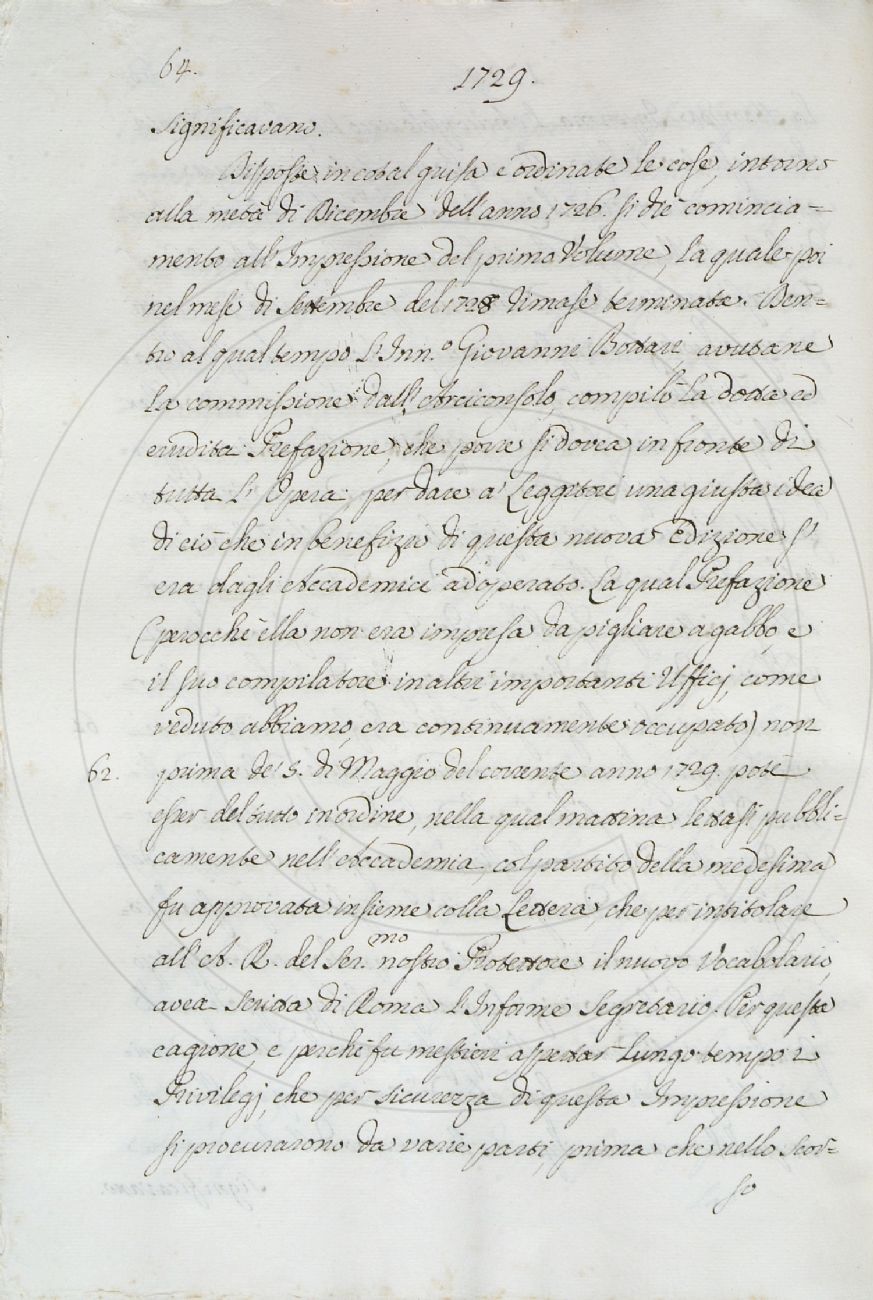 64.
1729.
significavano.
Disposte in cotal guisa e ordinate le cose, intorno
alla metà di Dicembre dell'anno 1726. si diè comincia=
mento all'Impressione del primo Volume, la quale poi
nel mese di Settembre del 1728 rimase terminata. Den=
tro al qual tempo l'Inn.º Giovanni Bottari avutane
la commissione dall'Arciconsolo, compilò la dotta ed
erudita Prefazione, che porre si dovea in fronte di
tutta l'Opera, per dare a' Leggitori una giusta idea
di ciò che in benefizio di questa nuova Edizione s'
era dagli Accademici adoperato. La qual Prefazione
(perocchè ella non era impresa da pigliare a gabbo, e
il suo compilatore in altri importanti Uffici, come
veduto abbiamo, era continuamente occupato) non
62. prima de' 5. di Maggio del corrente anno 1729. potè
esser del tutto in ordine, nella qual mattina lettasi pubbli=
camente nell'Accademia, col partito della medesima
fu approvata insieme colla Lettera, che per intitolare
all'A. R. del Ser.mo nostro Protettore il nuovo Vocabolario,
avea scritta di Roma l'Informe Segretario. Per questa
cagione, e perchè fu mestieri aspettar lungo tempo i
Privilegj, che per sicurezza di questa Impressione
si procurarono da varie parti, prima che nello scor=
so